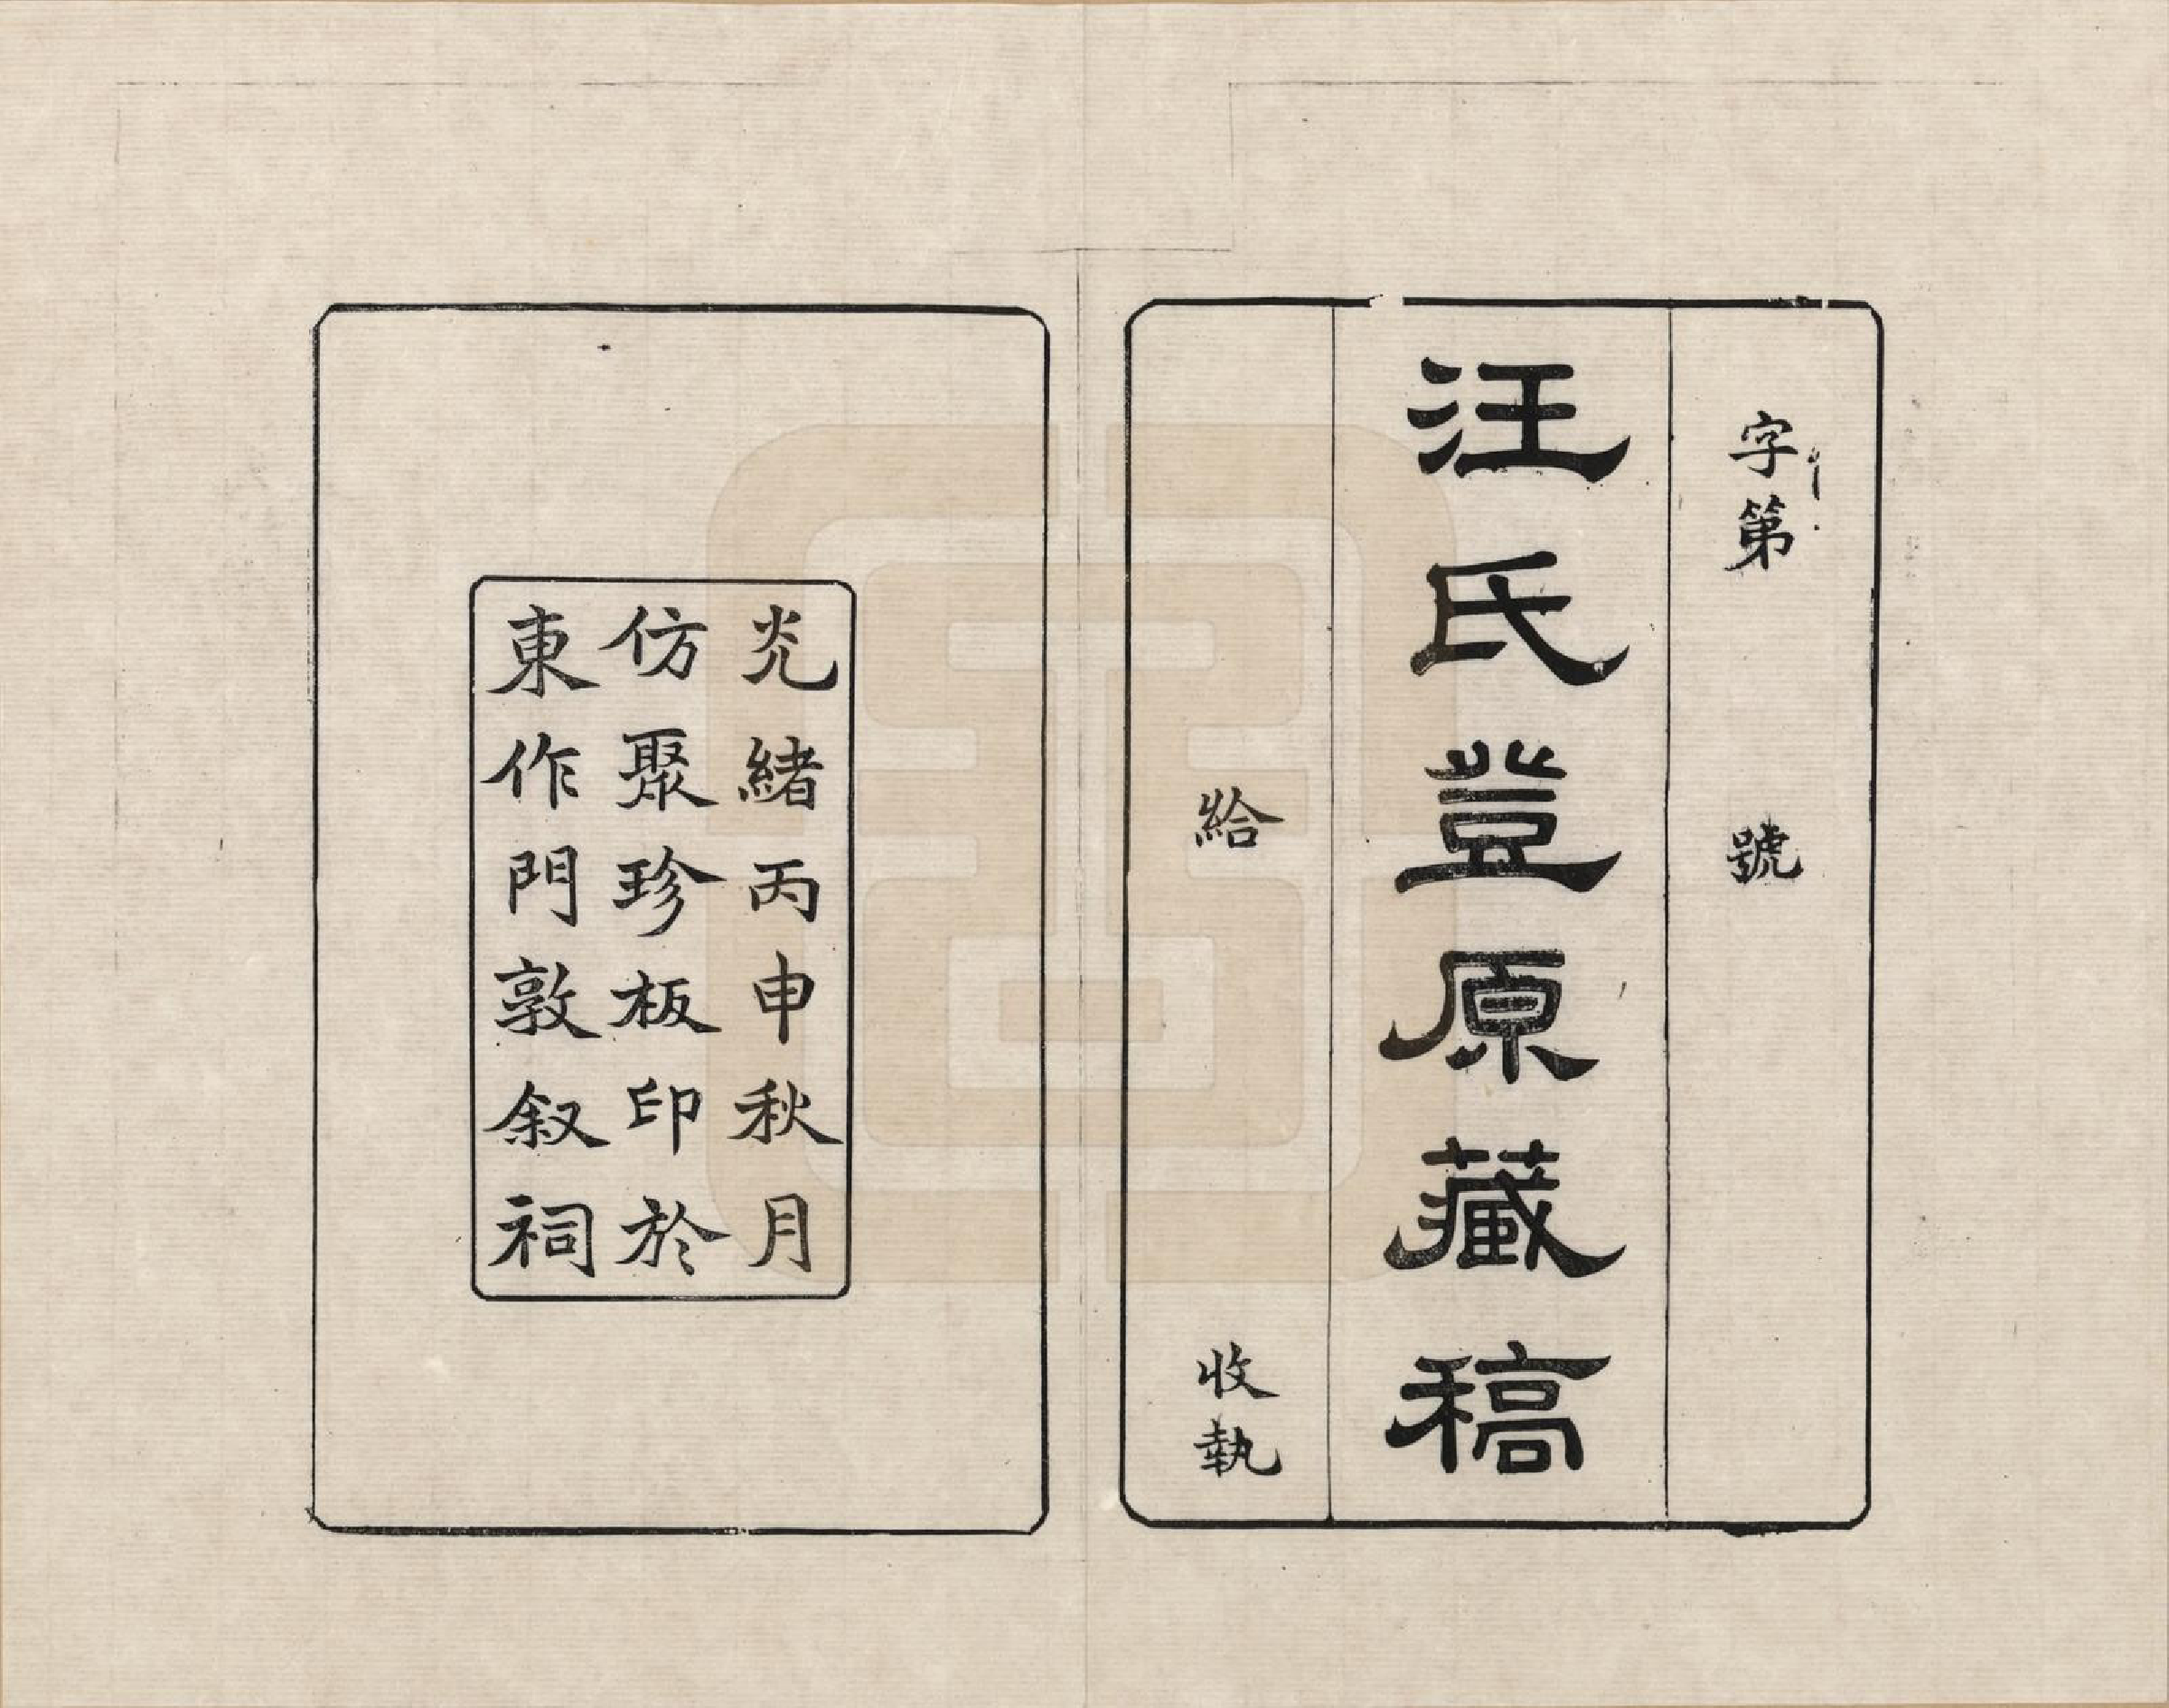 字第　號
汪氏豋原藏稿
給　收執
光緒丙申秋月
仿聚珍板印於
東作門敦叙祠